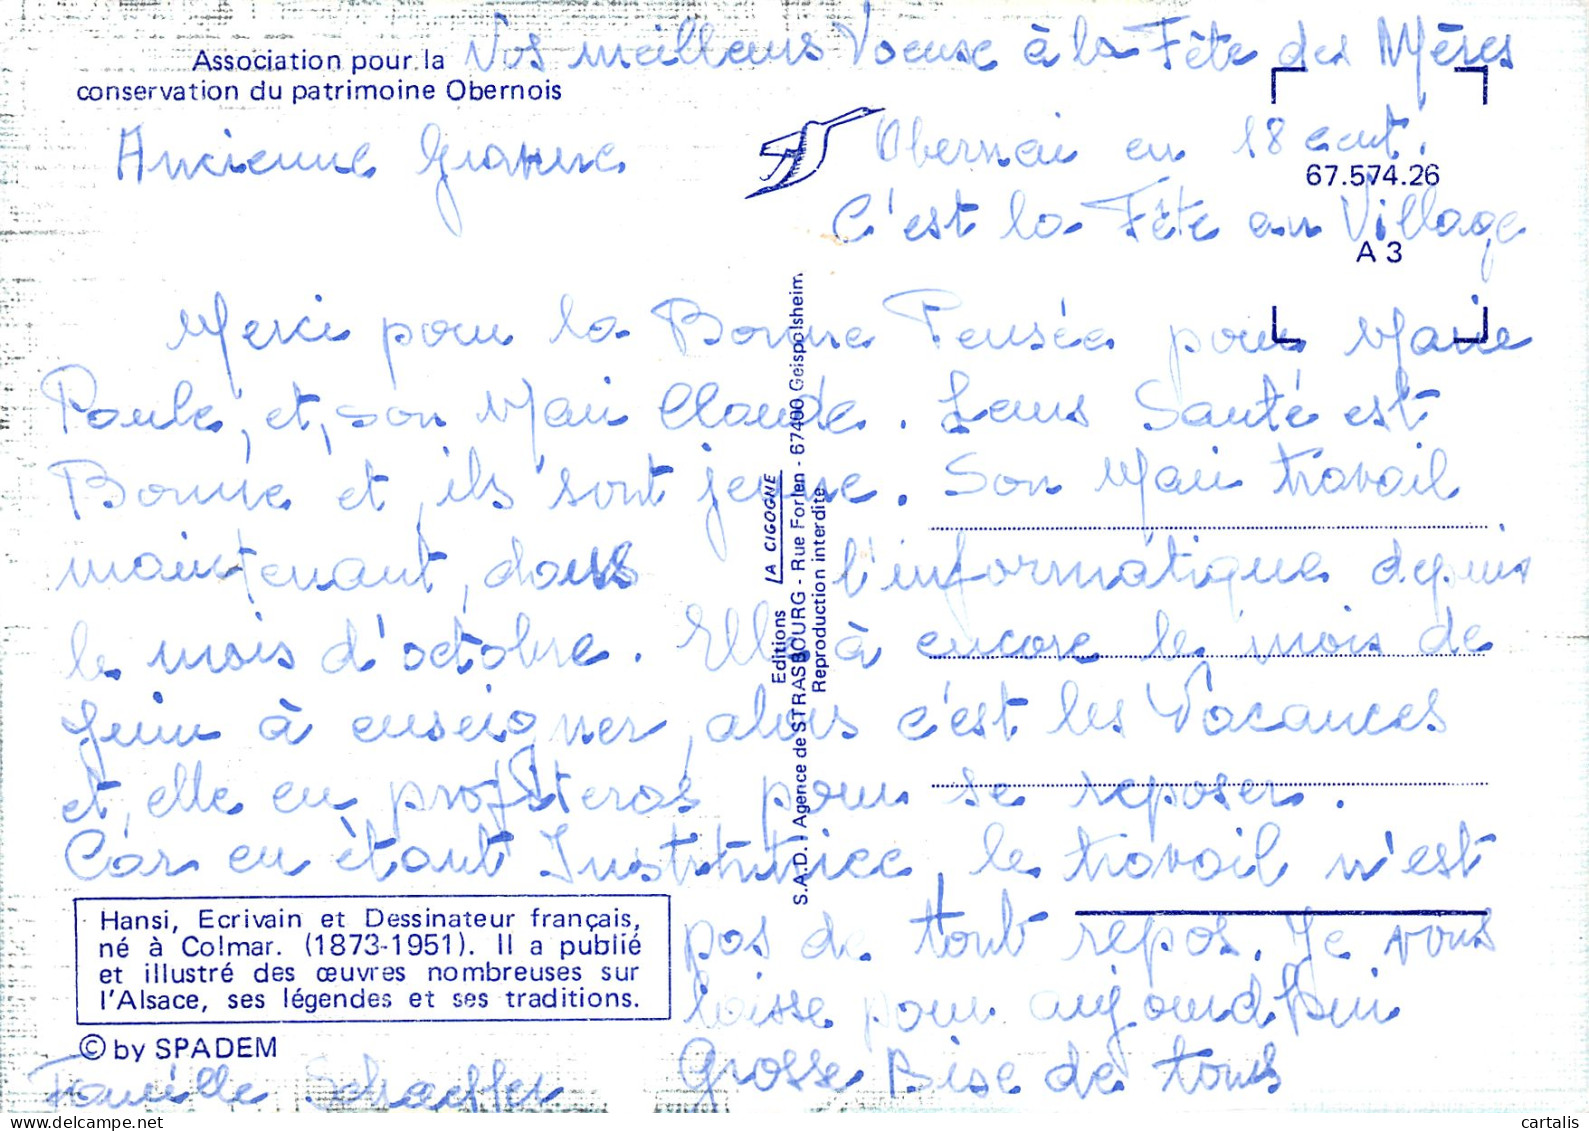 Vos meilleurs Voeuse à la Fête des Mères
Association pour la
conservation du patrimoine Obernois
Ancienne gravure
Obernai en 18 cent.
67.574.26
C'est la Fête au Village
A 3
Merci pour la Bonne Pensée pour Marie
Paule, et, son Mari Claude. Leurs Santé est
Bonne et, ils sont jeune. Son Mari travail
maintenant, dans l'informatique depuis
le mois d'octobre. Elle à encore le mois de
Juin à enseigner, alors c'est les Vacances
et, elle en profiteras pour se reposer.
Car en ètant Institutrice, le travail n'est
pas de tout repos. Je vous
laisse pour aujourd'hui
Grosse Bise de tous
Famille Schaeffer
Hansi, Ecrivain et Dessinateur français,
né à Colmar. (1873-1951). Il a publié
et illustré des œuvres nombreuses sur
l'Alsace, ses légendes et ses traditions.
© by SPADEM
Editions LA CIGOGNE
S.A.D. - Agence de STRASBOURG - Rue Forlen - 67400 Geispolsheim
Reproduction interdite
delcampe.net
cartalis